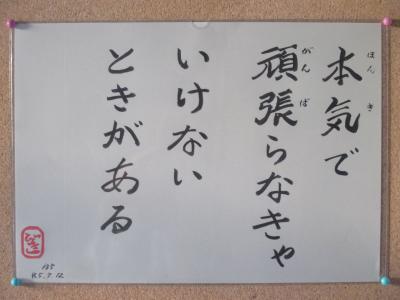 本気で
頑張らなきゃ
いけない
ときがある
ほんき
がんば
135
R5.7.12